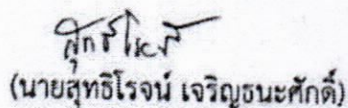 สุทธิโรจน์
(นายสุทธิโรจน์ เจริญธนะศักดิ์)